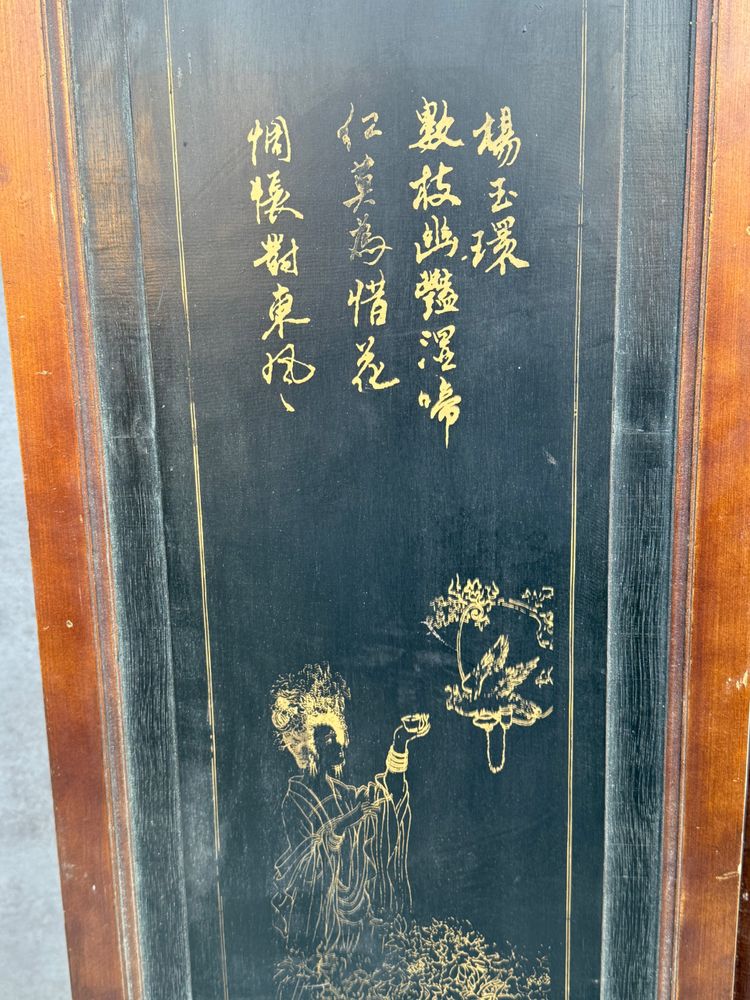 楊玉環
數枝幽艷濕啼
红莫為惜花
惆悵對東風